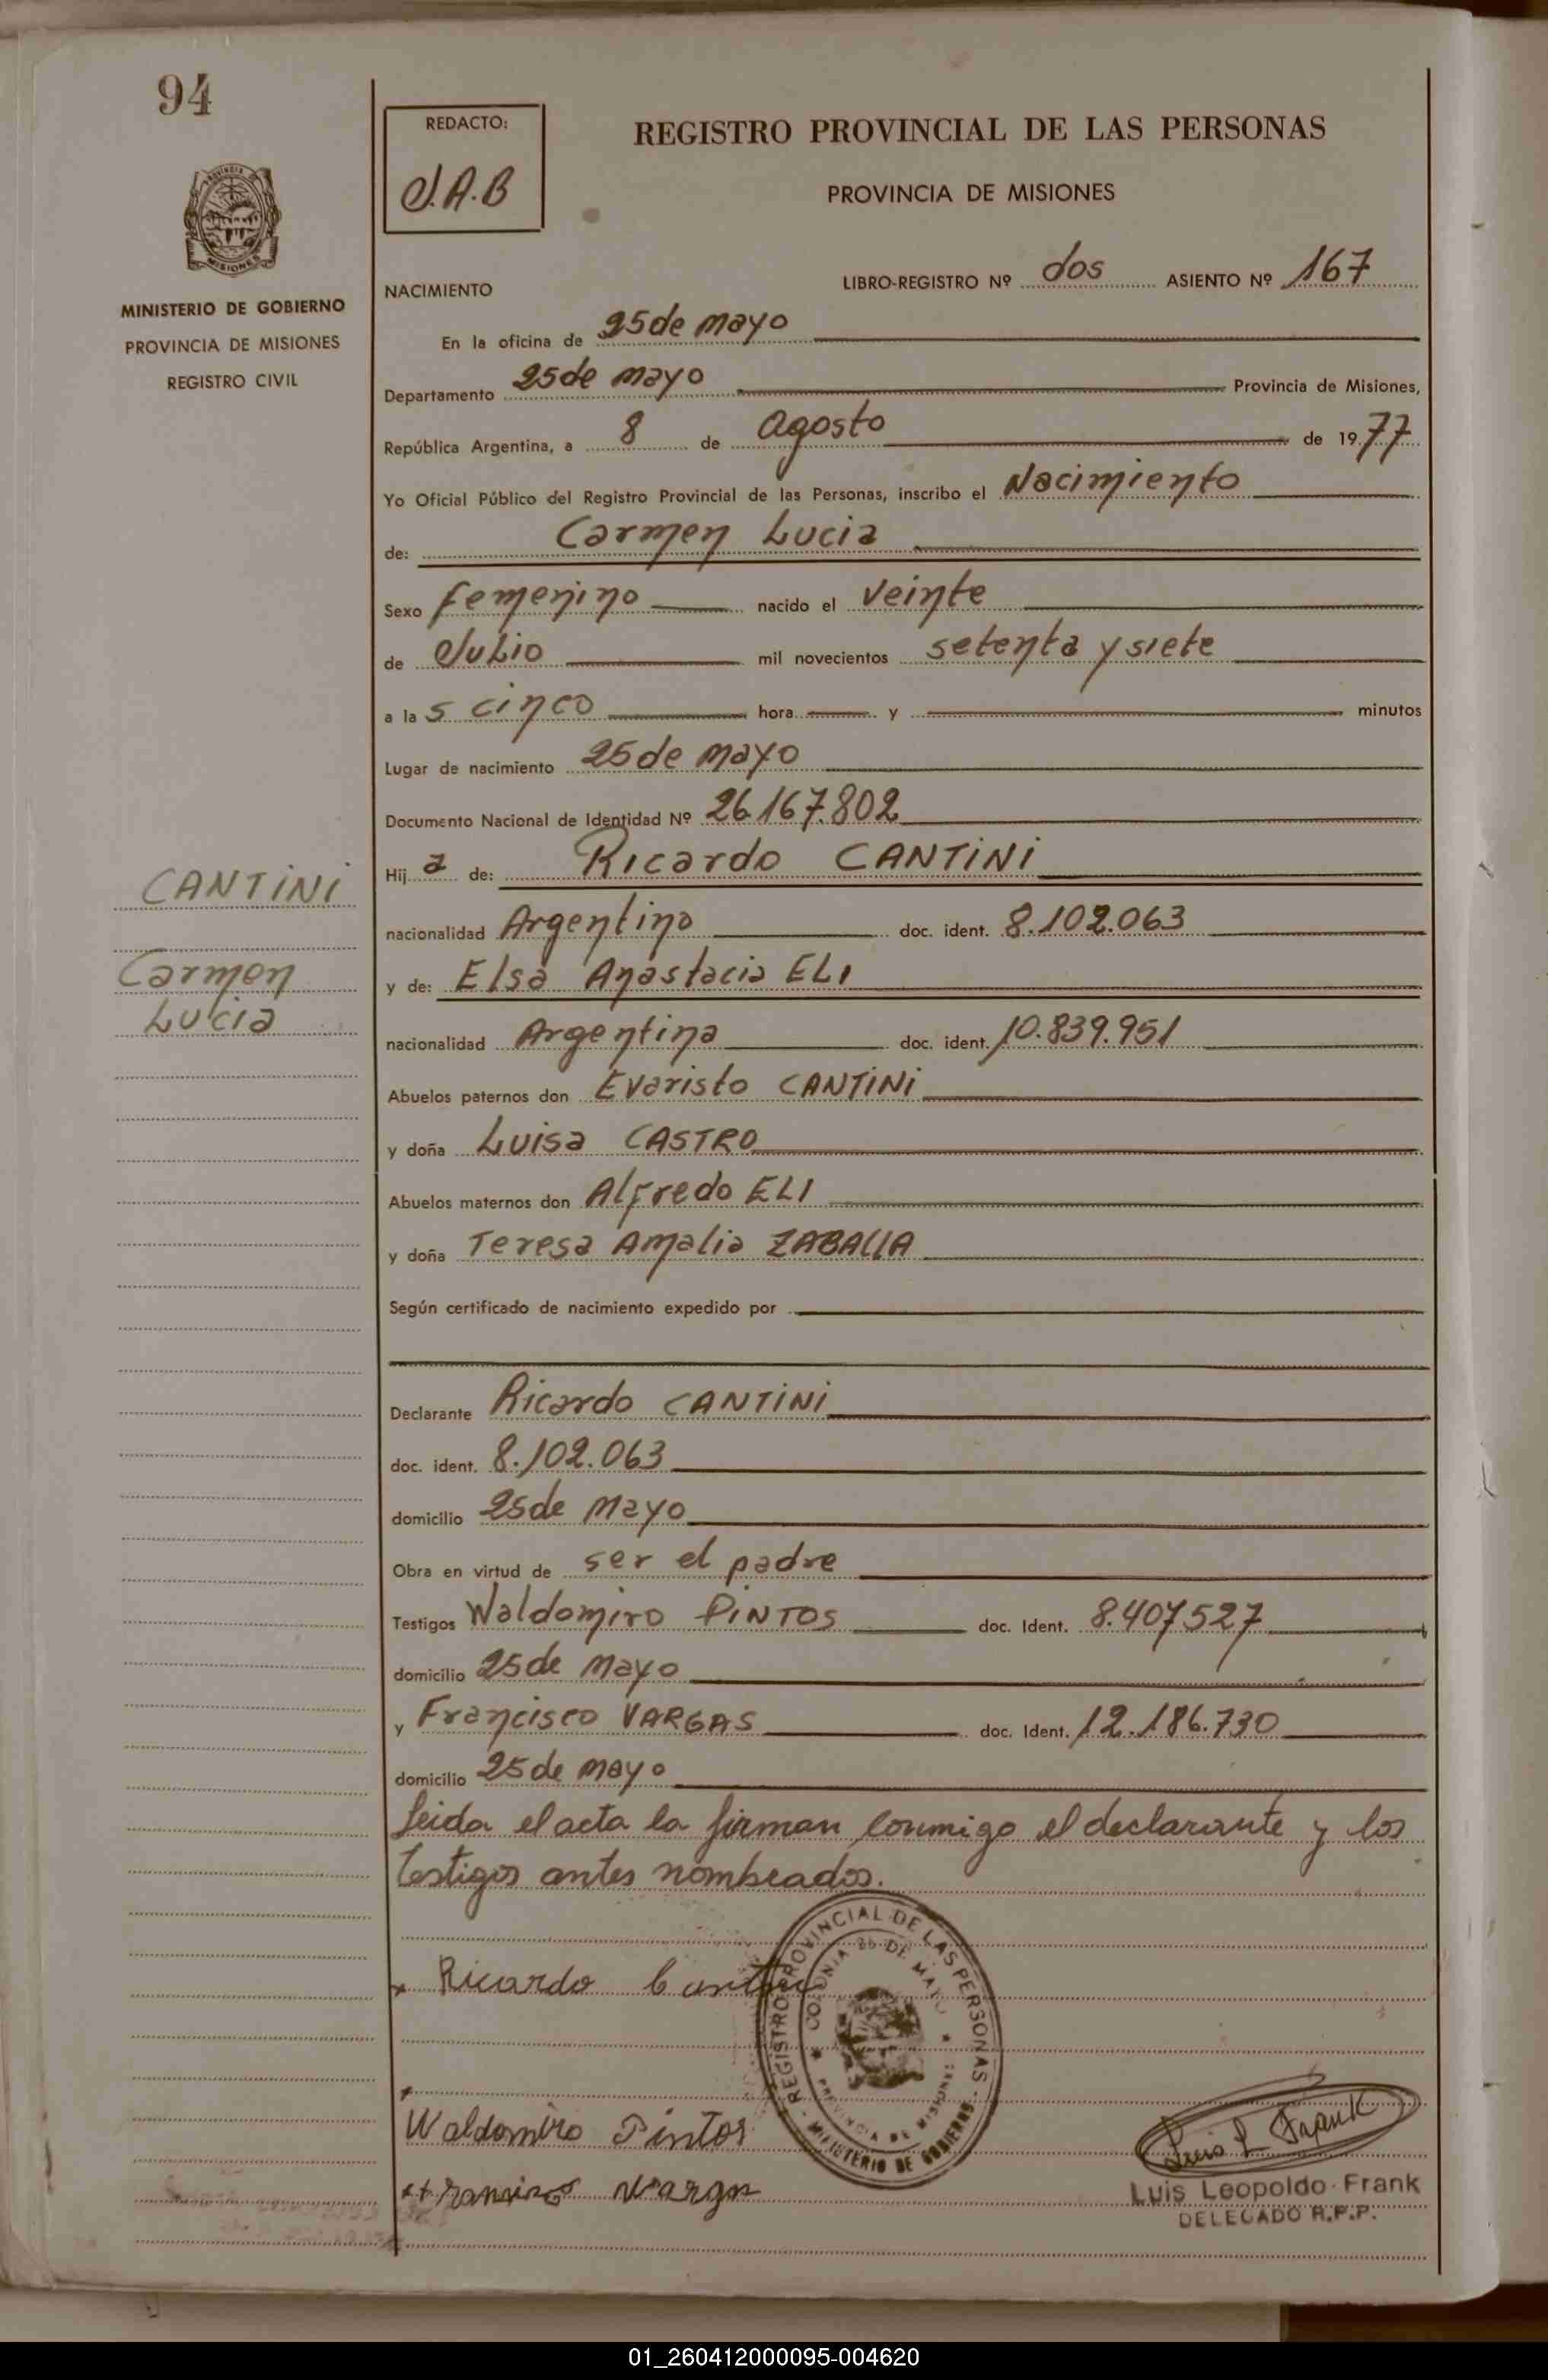 94
REDACTO:
J.A.B
REGISTRO PROVINCIAL DE LAS PERSONAS
PROVINCIA DE MISIONES
MISIONES
MINISTERIO DE GOBIERNO
PROVINCIA DE MISIONES
REGISTRO CIVIL
NACIMIENTO
LIBRO-REGISTRO Nº dos ASIENTO Nº 167
En la oficina de 25 de mayo
Departamento 25 de mayo Provincia de Misiones,
República Argentina, a 8 de Agosto de 1977
Yo Oficial Público del Registro Provincial de las Personas, inscribo el Nacimiento
de: Carmen Lucia
Sexo femenino nacido el veinte
de Julio mil novecientos setenta y siete
a las cinco hora y minutos
Lugar de nacimiento 25 de mayo
Documento Nacional de Identidad Nº 26.167.802
Hija de: Ricardo CANTINI
CANTINI
nacionalidad Argentino doc. ident. 8.102.063
Carmen
y de: Elsa Anastacia ELI
Lucia
nacionalidad Argentina doc. ident. 10.839.951
Abuelos paternos don Evaristo CANTINI
y doña Luisa CASTRO
Abuelos maternos don Alfredo ELI
y doña Teresa Amalia ZABALLA
Según certificado de nacimiento expedido por
Declarante Ricardo CANTINI
doc. ident. 8.102.063
domicilio 25 de mayo
Obra en virtud de ser el padre
Testigos Waldomiro PINTOS doc. Ident. 8.407.527
domicilio 25 de mayo
y Francisco VARGAS doc. Ident. 12.186.730
domicilio 25 de mayo
Leida el acta la firman conmigo el declarante y los
testigos antes nombrados.
REGISTRO PROVINCIAL DE LAS PERSONAS
COLONIA 25 DE MAYO
PROVINCIA DE MISIONES
MINISTERIO DE GOBIERNO
Ricardo Cantini
Waldomiro Pintos
Vargas
Luis L Frank
Luis Leopoldo Frank
DELEGADO R.P.P.
01_260412000095-004620